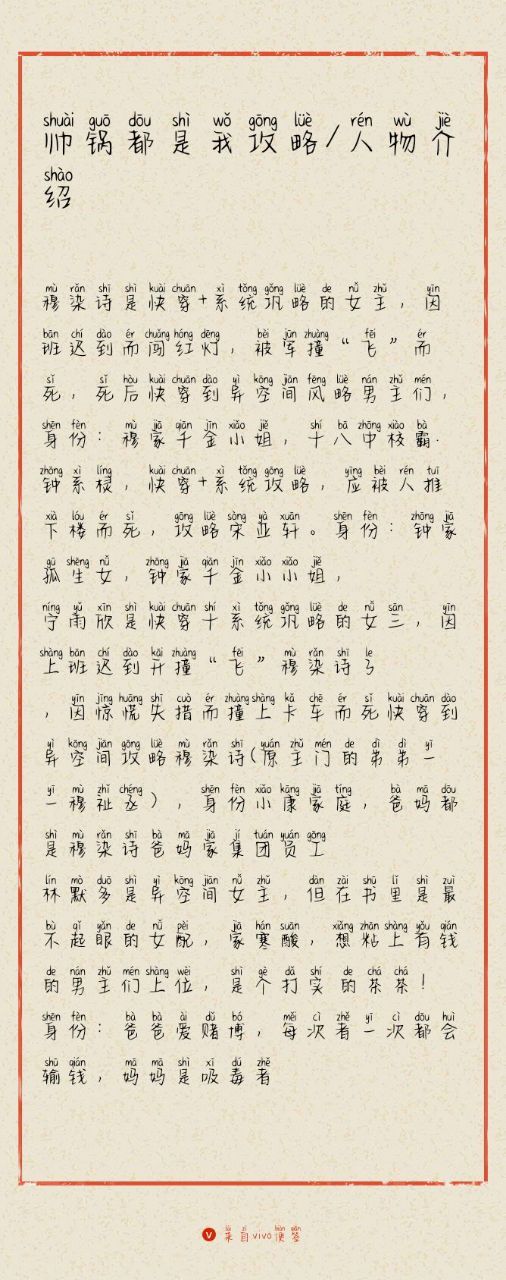 shuài guō dōu shì wǒ gōng lüè rén wù jiè
帅锅都是我攻略/人物介
shào
绍
mù rǎn shī shì kuài chuān xì tǒng gōng lüè de nǚ zhǔ yīn
穆染诗是快穿+系统巩略的女主，因
bān chí dào ér chuǎng hóng dēng bèi jūn zhuàng fēi ér
班迟到而闯红灯，被军撞“飞”而
sǐ sǐ hòu kuài chuān dào yì kōng jiān fēng lüè nán zhǔ mén
死，死后快穿到异空间风略男主们，
shēn fèn mù jiā qiān jīn xiǎo jiě shí bā zhōng xiào bà
身份：穆家千金小姐，十八中校霸.
zhōng xì líng kuài chuān xì tǒng gōng lüè yīng bèi rén tuī
钟系棂，快穿+系统攻略，应被人推
xià lóu ér sǐ gōng lüè sòng yà xuān shēn fèn zhōng jiā
下楼而死，攻略宋亚轩。身份：钟家
gū shēng nǚ zhōng jiā qiān jīn xiǎo xiǎo jiě
孤生女，钟家千金小小姐，
níng yǔ xīn shì kuài chuān shí xì tǒng gōng lüè de nǚ sān yīn
宁雨欣是快穿十系统巩略的女三，因
shàng bān chí dào kāi zhuàng fēi mù rǎn shī le
上班迟到开撞“飞”穆染诗了
yīn jīng huāng shī cuò ér zhuàng shàng kǎ chē ér sǐ kuài chuān dào
，因惊慌失措而撞上卡车而死快穿到
yì kōng jiān gōng lüè mù rǎn shī yuán zhǔ mén de dì dì yī
异空间攻略穆染诗(原主门的弟弟一
yī mù zhǐ chéng shēn fèn xiǎo kāng jiā tíng bà mā dōu
一穆祉丞），身份小康家庭，爸妈都
shì mù rǎn shī bà mā jiā jí tuán yuán gōng
是穆染诗爸妈家集团员工
lín mò duō shì yì kōng jiān nǚ zhǔ dàn zài shū lǐ shì zuì
林默多是异空间女主，但在书里是最
bù qǐ yǎn de nǚ pèi jiā hán suān xiǎng zhān shàng yǒu qián
不起眼的女配，家寒酸，想粘上有钱
de nán zhǔ mén shàng wèi shì gè dǎ shí de chá chá
的男主们上位，是个打实的茶茶！
shēn fèn bà bà ài dǔ bó měi cì zhě yī cì dōu huì
身份：爸爸爱赌博，每次者一次都会
shū qián mā mā shì xī dú zhě
输钱，妈妈是吸毒者
lái zì biàn qiān
来自vivo便签